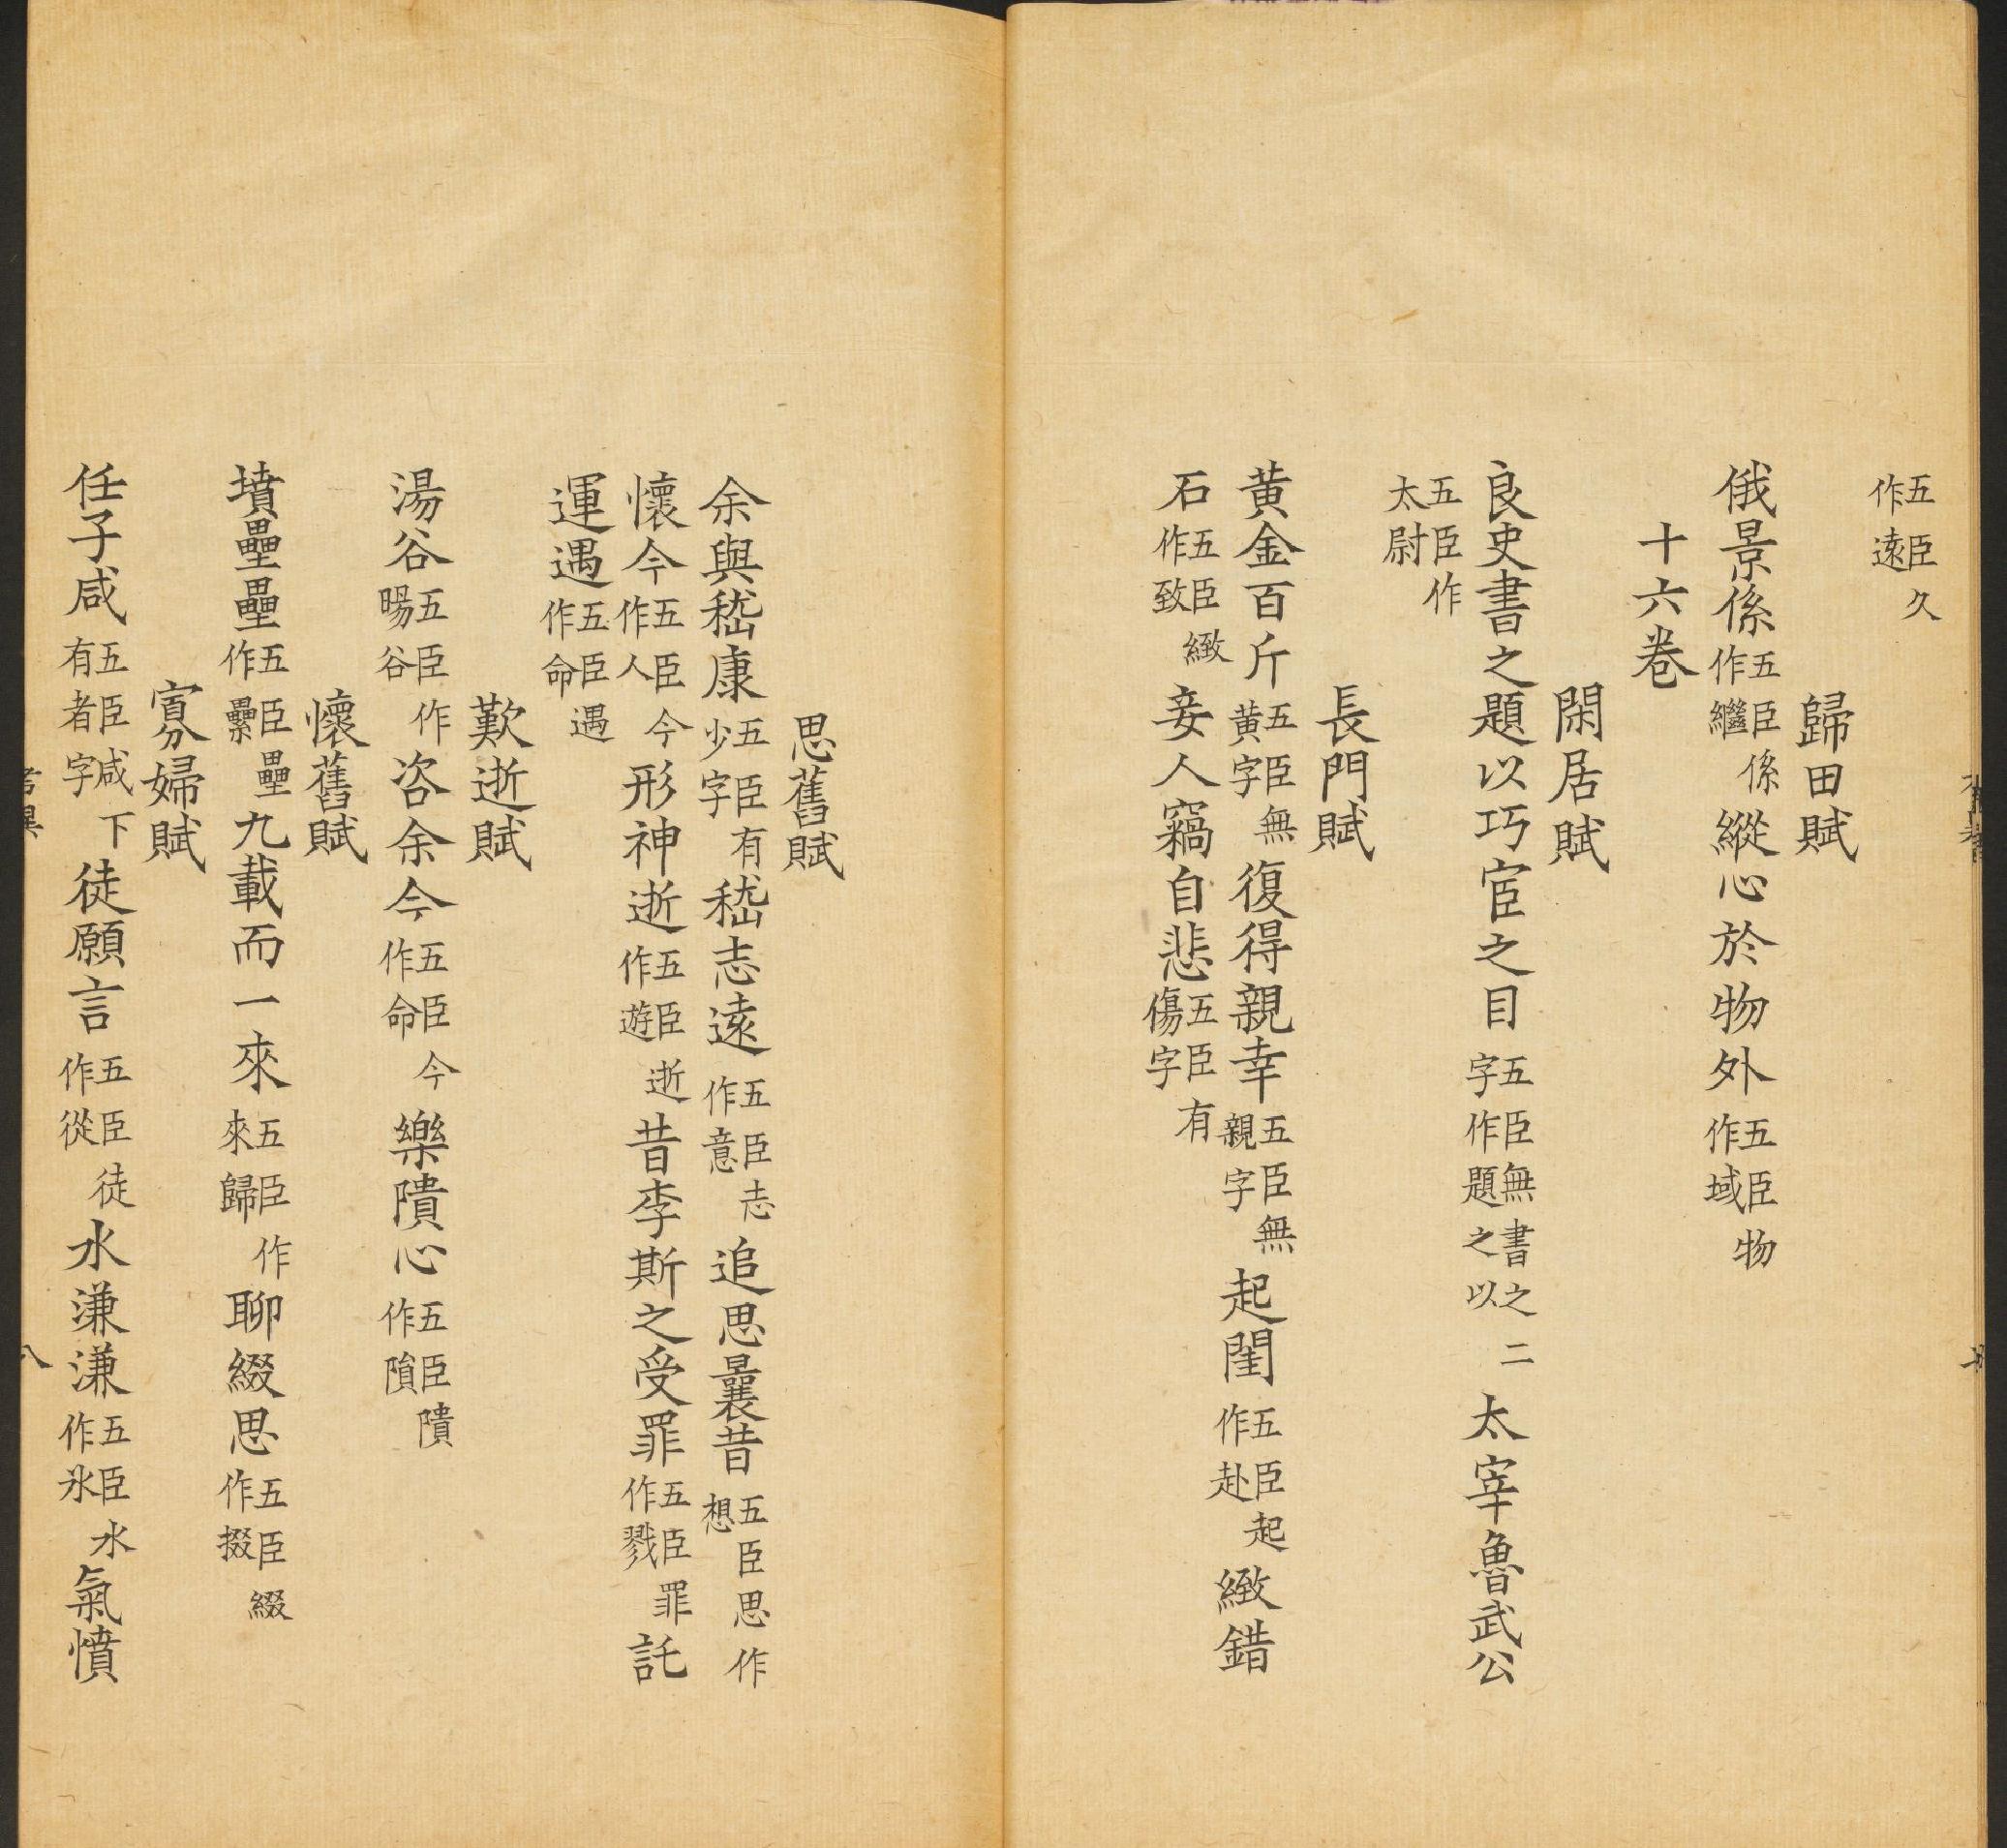 五臣久作遠
歸田賦
俄景係五臣係作繼縱心於物外五臣物作域
十六卷
閑居賦
良史書之題以巧宦之目五臣無書之二字作題之以太宰魯武公
五臣作太尉
長門賦
黄金百斤五臣無黄字復得親幸五臣無親字起閨五臣起作赴緻錯
石五臣緻作致妾人竊自悲五臣有傷字
思舊賦
余與嵇康五臣有少字嵇志遠五臣志作意追思曩昔五臣思作想
懷今五臣今作人形神逝五臣逝作遊昔李斯之受罪五臣罪作戮託
運遇五臣遇作命
歎逝賦
湯谷五臣作暘谷咨余今五臣今作命樂隤心五臣隤作隕
懷舊賦
墳壘壘五臣壘作纍九載而一來五臣作來歸聊綴思五臣綴作掇
寡婦賦
任子咸五臣咸下有者字徒願言五臣徒作從水溓溓五臣水作氷氣憤
考異 八